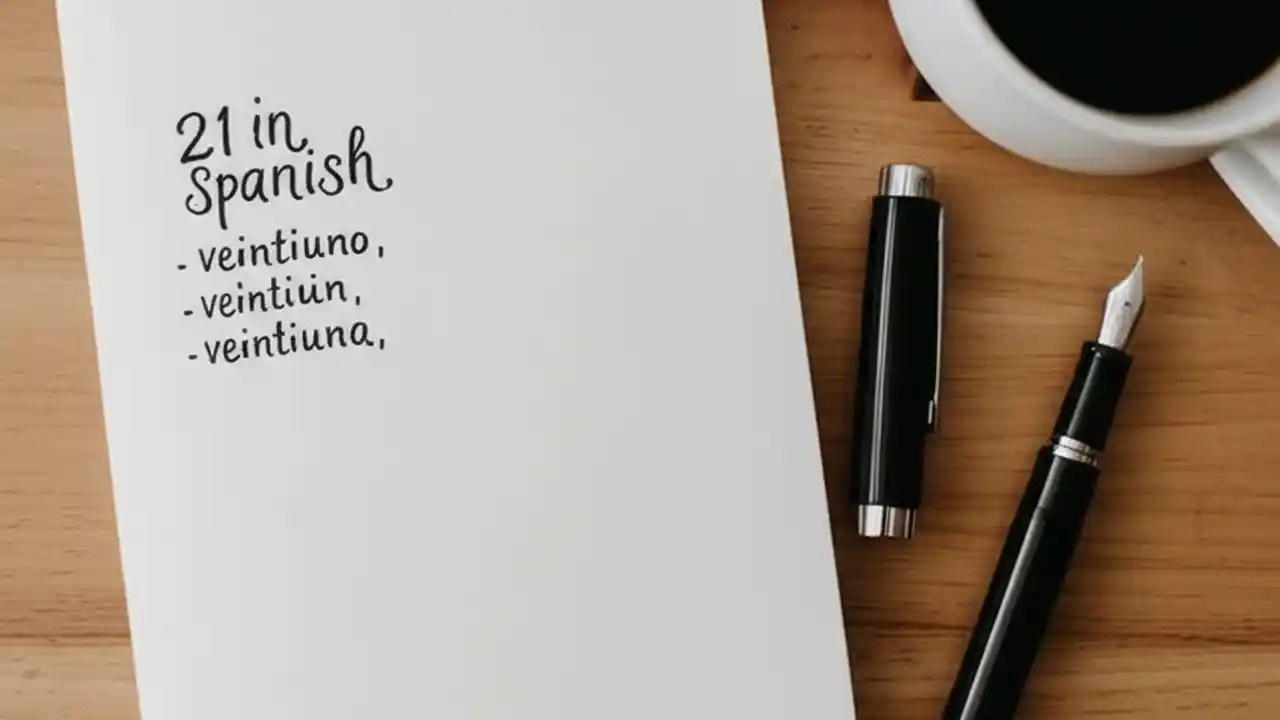 21 in
Spanish
- veintiuno,
- veintiún,
- veintiuna,